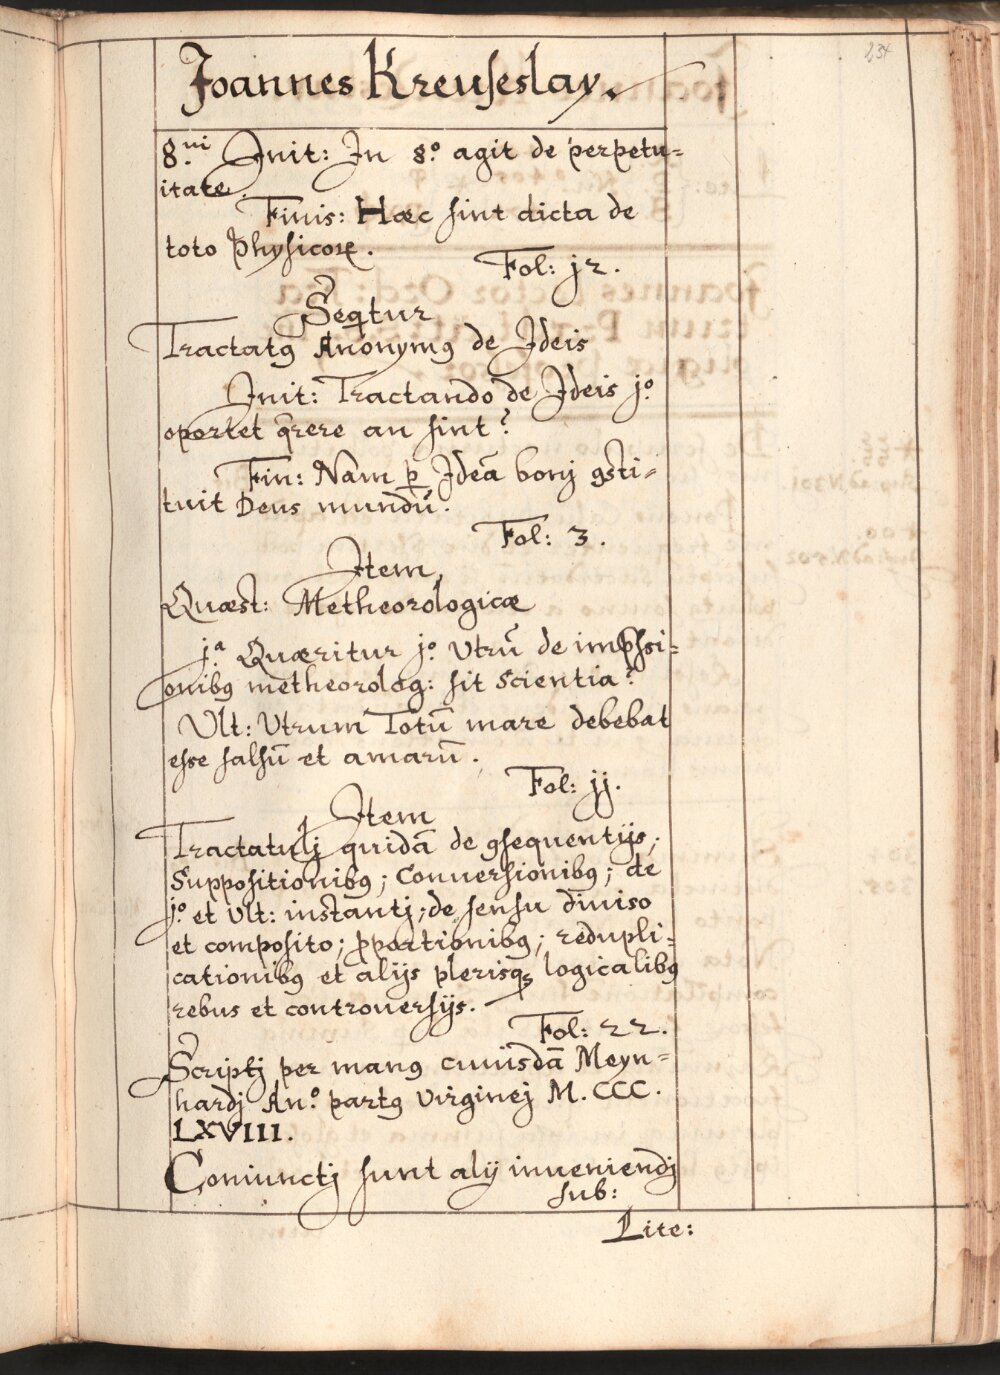 234
Joannes Kreuseslay.
8.ni Init: In 8.o agit de perpetu=
itate.
Finis: Hæc sint dicta de
toto Physicorꝝ.
Fol: j2.
Seqtur
Tractatꝰ Anonymꝰ de Ideis
Init: Tractando de Ideis j.o
oportet qrere an sint?
Fin: Nam ꝑ Ideā bonj ꝯsti=
tuit Deus mundū.
Fol: 3.
Item
Quæst: Metheorologicæ
j.a Quæritur j.o Vtrū de imp̄ssi=
onibꝰ metheorolog: sit scientia?
Vlt: Vtrum Totū mare debebat
esse salsū et amarū.
Fol: jj.
Item
Tractatulj quidā de ꝯsequentijs;
Suppositionibꝰ; Conuersionibꝰ; de
j.o et Vlt: instantj; de sensu diuiso
et composito; ꝓportionibꝰ; redupli=
cationibꝰ et alijs plerisqꝫ logicalibꝰ
rebus et controuersijs.
Fol: 22.
Scriptj per manꝰ cuiusdā Meyn=
hardj An.o partꝰ virginej M. CCC.
LXVIII.
Coniunctj sunt alij inueniendj
sub:
Lite: